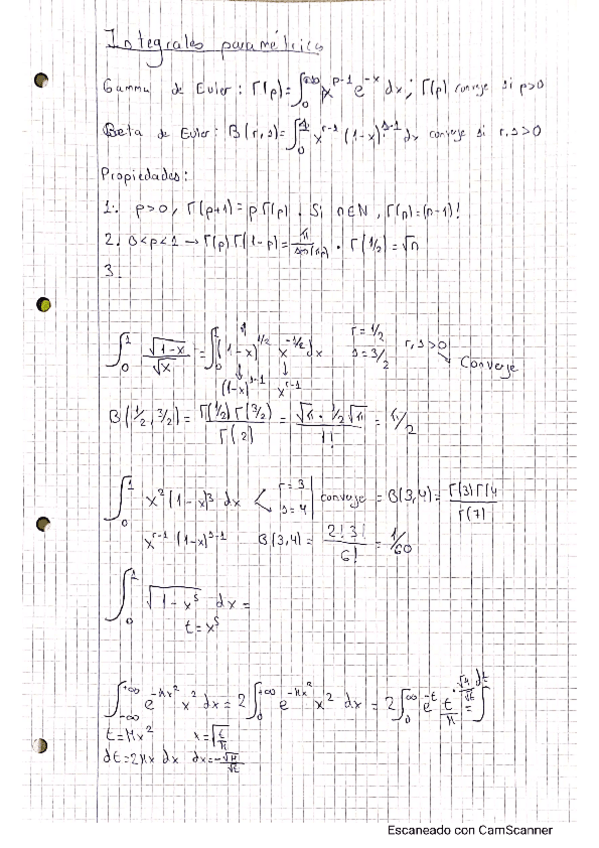 Integrales paramétricas
Gamma de Euler: Γ(p)=∫₀^{+∞} x^{p-1} e^{-x} dx; Γ(p) converge si p>0
Beta de Euler: B(r,s)=∫₀¹ x^{r-1} (1-x)^{s-1} dx converge si r,s>0
Propiedades:
1. p>0, Γ(p+1)=pΓ(p). Si n∈N, Γ(n)=(n-1)!
2. 0<p<1 → Γ(p)Γ(1-p)= π/sen(πp) · Γ(1/2)=√π
3.
∫₀¹ √(1-x)/√x = ∫₀¹ (1-x)^{1/2} x^{-1/2} dx r=1/2 s=3/2 | r,s>0 → Converge
(1-x)^{s-1} x^{r-1}
B(1/2, 3/2) = Γ(1/2)Γ(3/2)/Γ(2) = √π · 1/2 √π / 1! = π/2
∫₀¹ x²(1-x)³ dx < r=3 s=4 | converge = B(3,4) = Γ(3)Γ(4/Γ(7)
x^{r-1} (1-x)^{s-1} B(3,4) = 2!3!/6! = 1/60
∫₀¹ √(1-x⁵) dx =
t=x⁵
∫_{-∞}^{+∞} e^{-μx²} x² dx = 2∫₀^{+∞} e^{-μx²} x² dx = 2∫₀^{∞} e^{-t} t/μ
t=μx² x=√(t/μ)
dt=2μx dx dx=
Escaneado con CamScanner